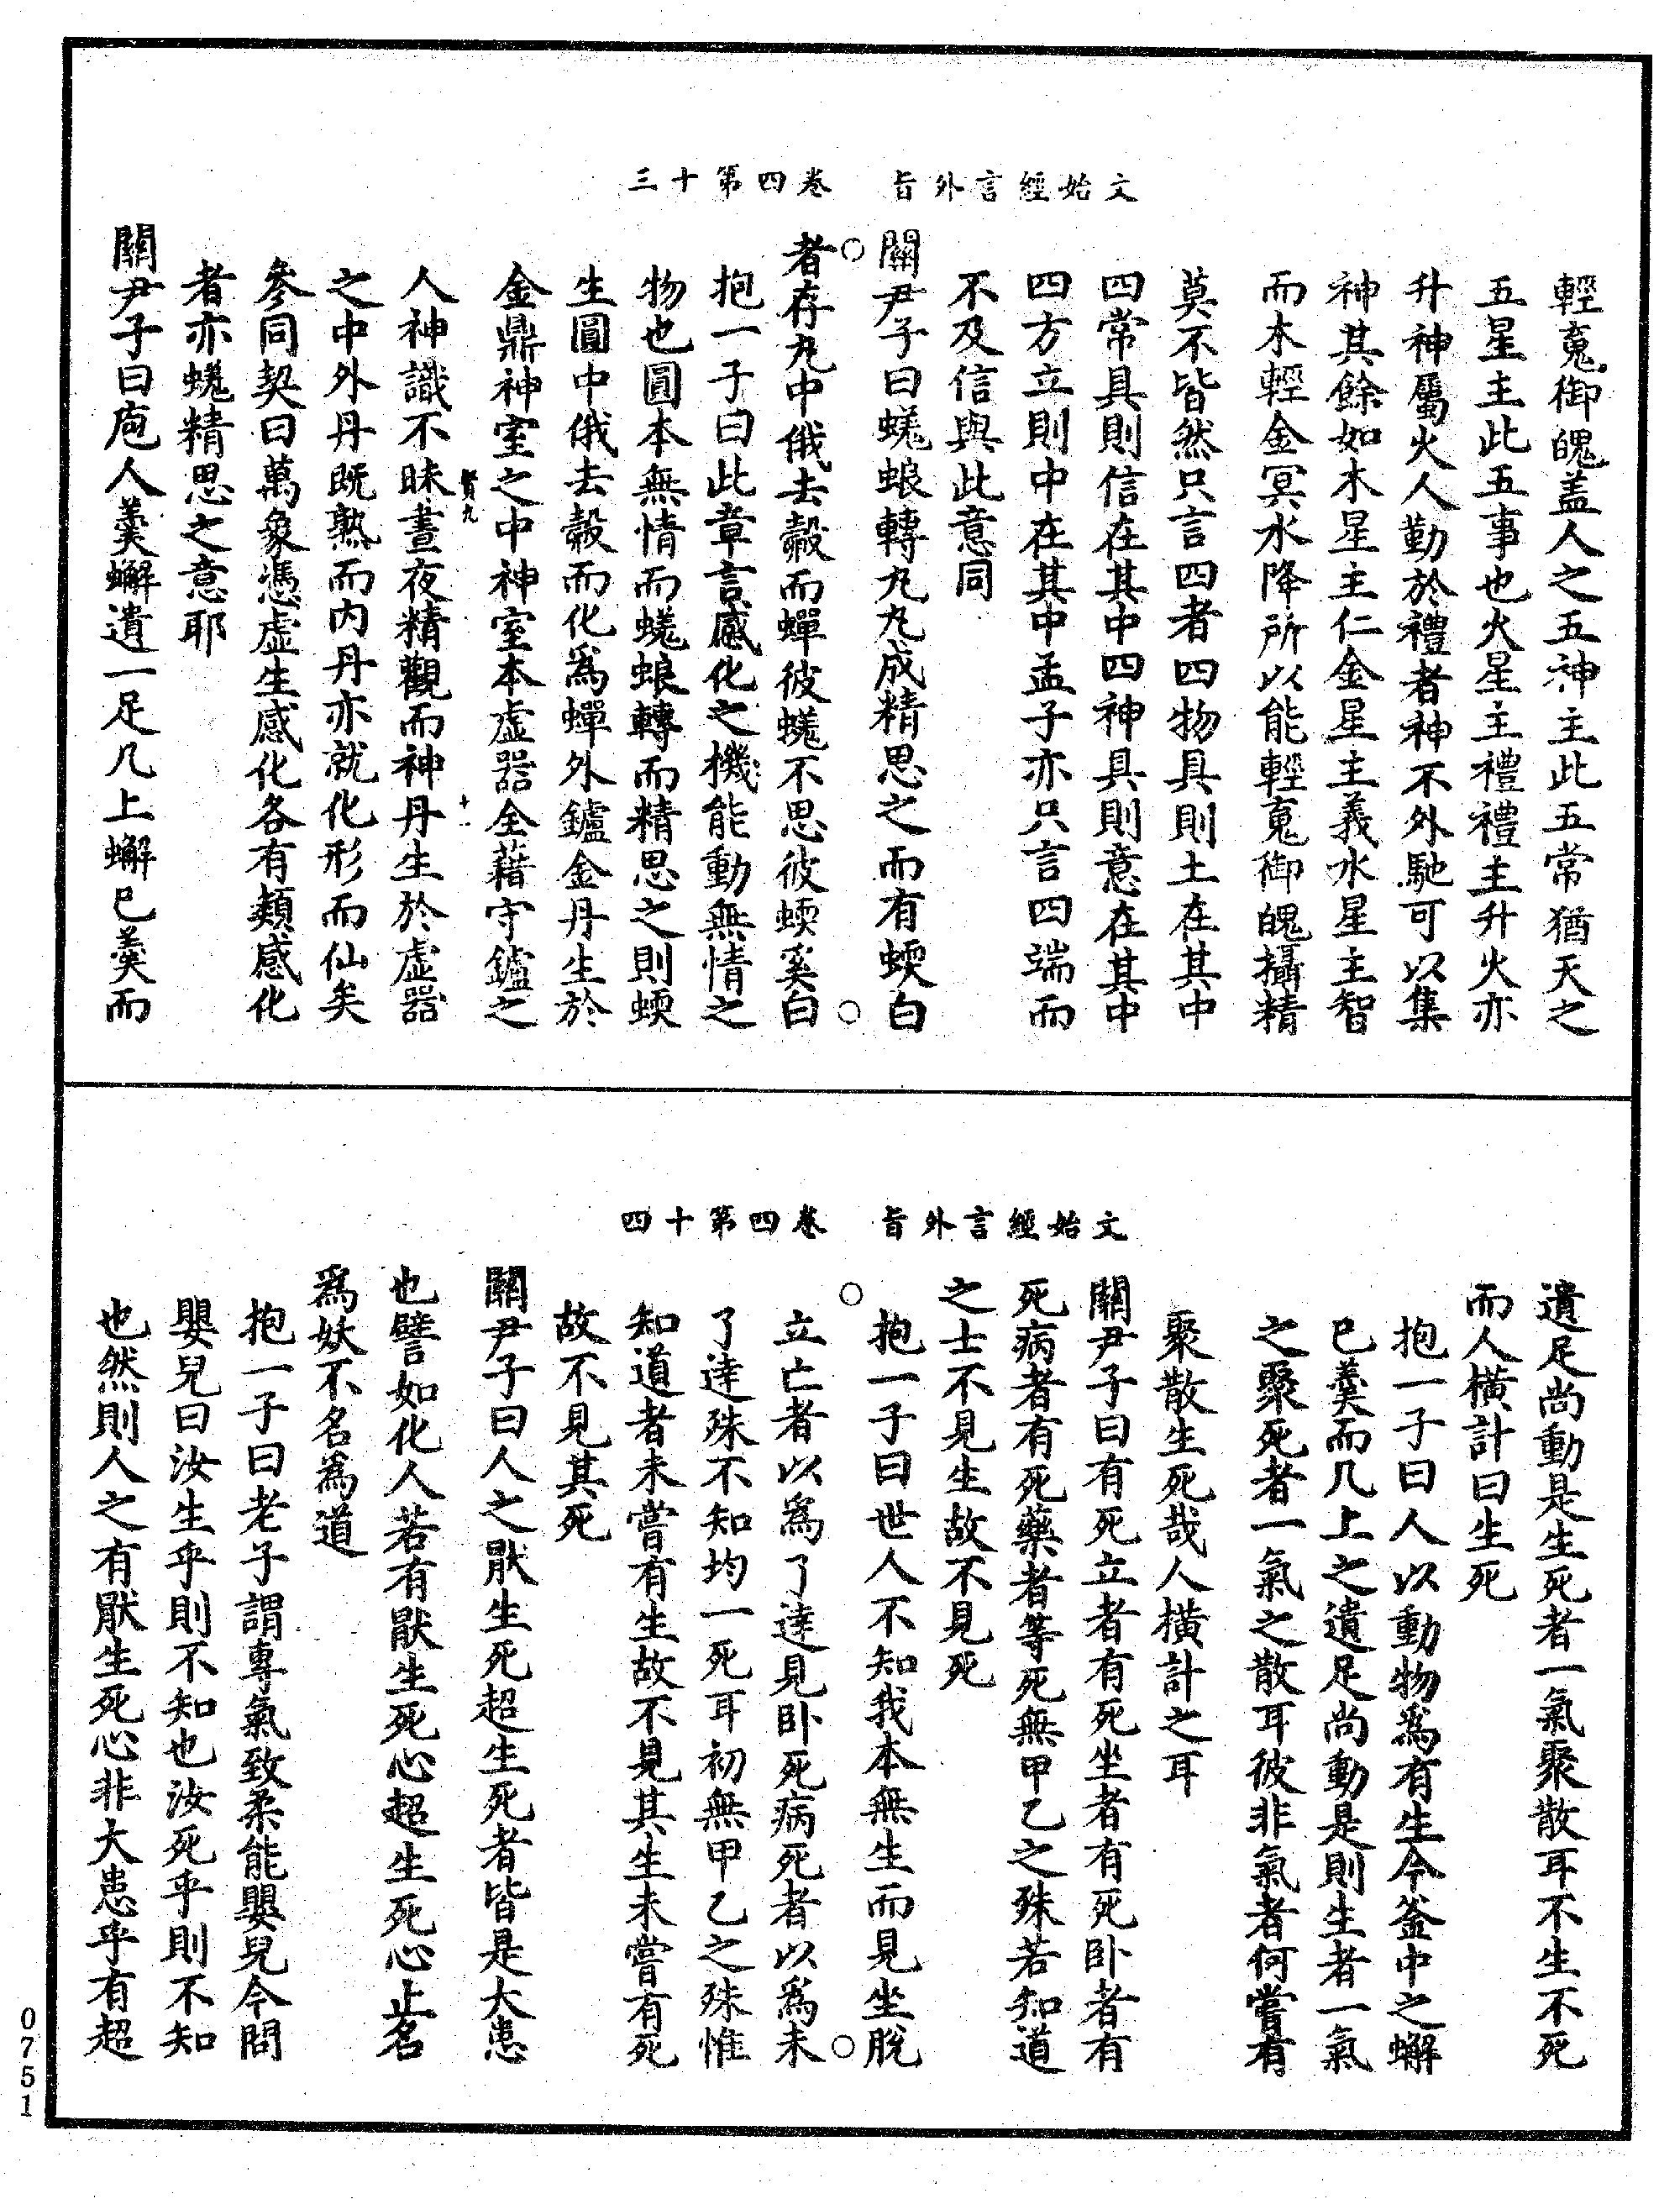 文始經言外旨　卷四第十三
輕䰟御魄盖人之五神主此五常猶天之
五星主此五事也火星主禮禮主升火亦
升神屬火人勤於禮者神不外馳可以集
神其餘如木星主仁金星主義水星主智
而木輕金冥水降所以能輕䰟御魄攝精
莫不皆然只言四者四物具則土在其中
四常具則信在其中四神具則意在其中
四方立則中在其中孟子亦只言四端而
不及信與此意同
關尹子曰蜣蜋轉丸丸成精思之而有蝡白
者存丸中俄去殼而蟬彼蜣不思彼蝡奚白
抱一子曰此章言感化之機能動無情之
物也圓本無情而蜣蜋轉而精思之則蝡
生圓中俄去殼而化爲蟬外鑪金丹生於
金鼎神室之中神室本虛器全藉守鑪之
賢九　十一
人神識不昧晝夜精觀而神丹生於虛器
之中外丹既熟而内丹亦就化形而仙矣
參同契曰萬象憑虛生感化各有類感化
者亦蜣精思之意耶
關尹子曰庖人羹蠏遺一足几上蠏已羹而
文始經言外旨　卷四第十四
遺足尚動是生死者一氣聚散耳不生不死
而人橫計曰生死
抱一子曰人以動物爲有生今釜中之蠏
已羹而几上之遺足尚動是則生者一氣
之聚死者一氣之散耳彼非氣者何嘗有
聚散生死哉人橫計之耳
關尹子曰有死立者有死坐者有死卧者有
死病者有死藥者等死無甲乙之殊若知道
之士不見生故不見死
抱一子曰世人不知我本無生而見坐脫
立亡者以爲了達見卧死病死者以爲未
了達殊不知均一死耳初無甲乙之殊惟
知道者未嘗有生故不見其生未嘗有死
故不見其死
關尹子曰人之猒生死超生死者皆是大患
也譬如化人若有猒生死心超生死心止名
爲妖不名爲道
抱一子曰老子謂專氣致柔能嬰兒今問
嬰兒曰汝生乎則不知也汝死乎則不知
也然則人之有猒生死心非大患乎有超
0751